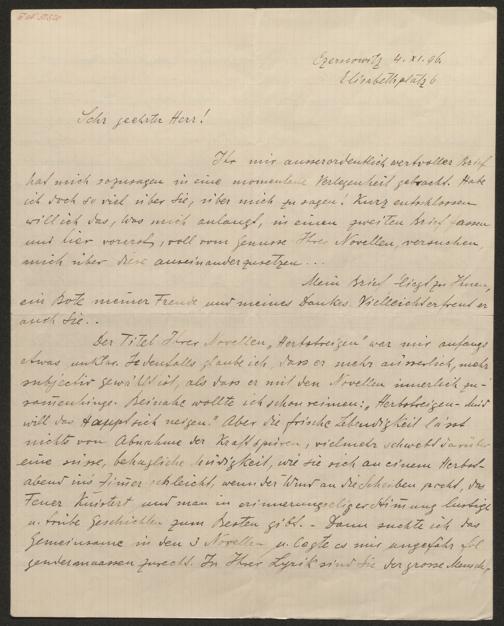 Czernowitz 4. XI. 96.
Elisabethplatz 6
Sehr geehrter Herr!
Ihr mir ausserordentlich wertvoller Brief
hat mich sozusagen in eine momentane Verlegenheit gebracht. Habe
ich doch so viel über Sie, über mich zu sagen! Kurz entschlossen
will ich das, was mich anlangt, in einen zweiten Brief
und hier vorerst, voll vom Genusse Ihrer Novellen, versuchen,
mich über diese auseinanderzusetzen...
Mein Brief fliegt zu Ihnen,
ein Bote meiner Freude und meines Dankes. Vielleicht erfreut er
auch Sie..
Der Titel Ihrer Novellen „Herbstreigen" war mir anfangs
etwas unklar. Jedenfalls glaube ich, dass er mehr äusserlich, mehr
subjectiv gewählt ist, als dass er mit den Novellen innerlich zu-
sammenhinge. Beinahe wollte ich schon reimen: „Herbstreigen - müd
will das Haupt sich neigen." Aber die frische Lebendigkeit lässt
nichts von Abnahme der Kraft spüren, vielmehr schwebt darüber
eine süsse, behagliche Müdigkeit, wie sie sich an einem Herbst-
abend ins Zimmer schleicht, wenn der Wind an die Scheiben pocht, das
Feuer knistert und man in erinnerungseliger Stimmung lustige
u. trübe Geschichten zum Besten gibt. - Dann suchte ich das
Gemeinsame in den 3 Novellen u. legte es mir ungefähr fol
gendermaassen zurecht. In Ihrer Lyrik sind Sie der grosse Mensch,